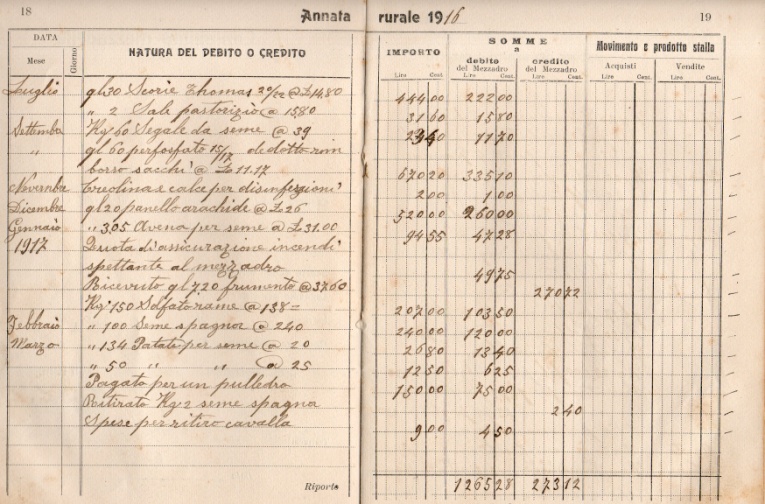 18 Annata rurale 1916 19
DATA NATURA DEL DEBITO O CREDITO IMPORTO SOMME a Movimento e prodotto stalla
Mese Giorno debito del Mezzadro credito del Mezzadro Acquisti Vendite
Lire Cent. Lire Cent. Lire Cent. Lire Cent. Lire Cent.
Luglio gl 30 Scorie Thomas 20/22 @ £ 14.80 444 00 222 00
„ 2 Sale pastorizio @ 15 80 31 60 15 80
Settembre Kg 60 Segale da seme @ 39 11 70
„ gl 60 perfosfato 15/17 dedotto rim
borso sacchi @ £ 11.17 670 20 335 10
Novembre Creolina e calce per disinfezioni 2 00 1 00
Dicembre gl 20 panello arachide @ £ 26 520 00 260 00
Gennaio „ 3,05 Avena per seme @ £ 31.00 94 55 47 28
1917 Quota d'assicurazione incendi
spettante al mezzadro 49 75
Ricevuto gl 7,20 frumento @ 37.60 270 72
Kg 150 Solfato rame @ 138 = 207 00 103 50
Febbraio „ 100 Seme spagna @ 240 240 00 120 00
Marzo „ 134 Patate per seme @ 20 26 80 13 40
„ 50 „ „ @ 25 12 50 6 25
Pagato per un pulledro 150 00 75 00
Ritirato Kg 2 seme spagna 2 40
Spese per ritiro cavalla 9 00 4 50
Riporto 1265 28 273 12